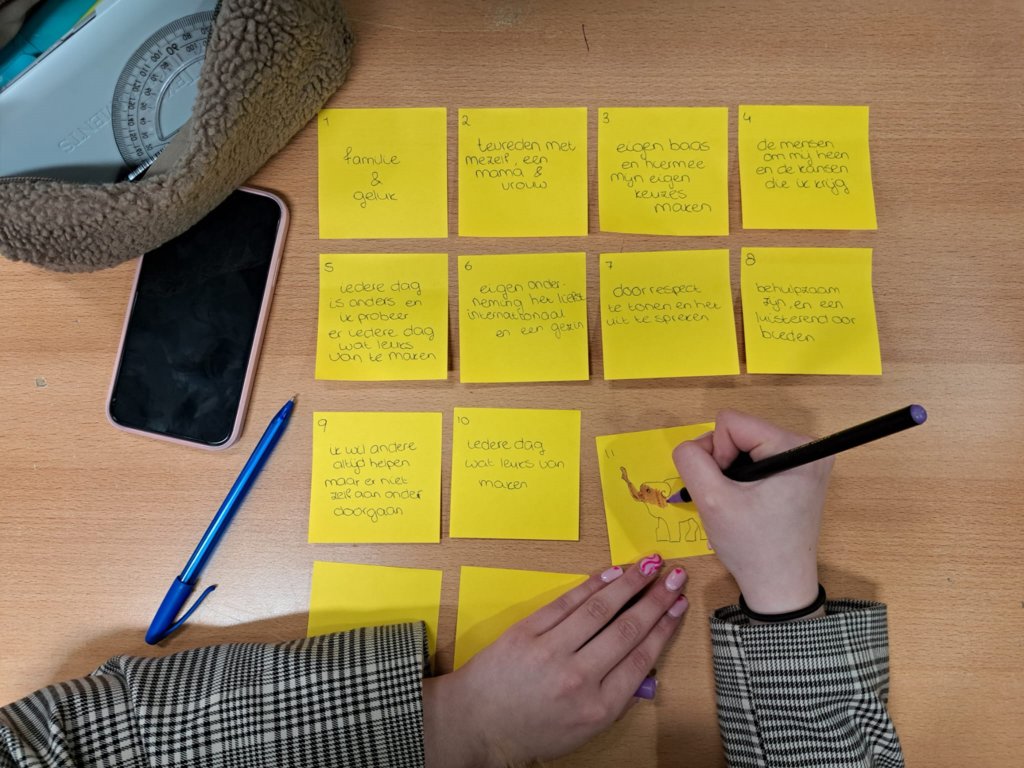 1
familie
&
geluk
2
tevreden met
mezelf, een
mama &
vrouw
3
eigen baas
en hiermee
mijn eigen
keuzes
maken
4
de mensen
om mij heen
en de kansen
die ik krijg
5
iedere dag
is anders en
ik probeer
er iedere dag
wat leuks
van te maken
6
eigen onder-
neming het liefst
internationaal
en een gezin
7
door respect
te tonen en het
uit te spreken
8
behulpzaam
zijn, en een
luisterend oor
bieden
9
ik wil andere
altijd helpen
maar er niet
zelf aan onder
doorgaan
10
iedere dag
wat leuks van
maken
11